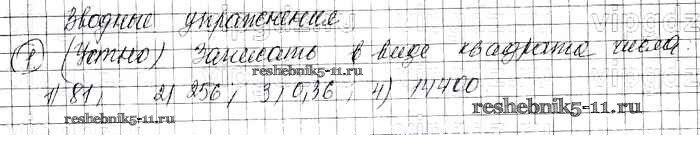 Зводные упражнения
1 (Устно) Записать в виде квадрата числа.
reshebnik5-11.ru
1) 81, 2) 256, 3) 0,36, 4) 14400
reshebnik5-11.ru
reshebnik5-11.ru